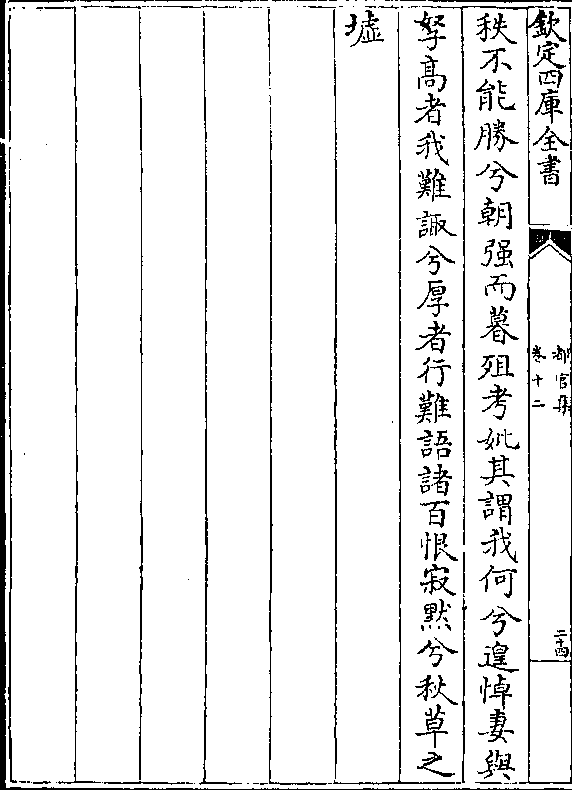 欽定四庫全書
都官集
卷十二
二十四
秩不能勝兮朝强而暮殂考妣其謂我何兮遑悼妻與
孥高者我難諏兮厚者行難語諸百恨寂黙兮秋草之
墟